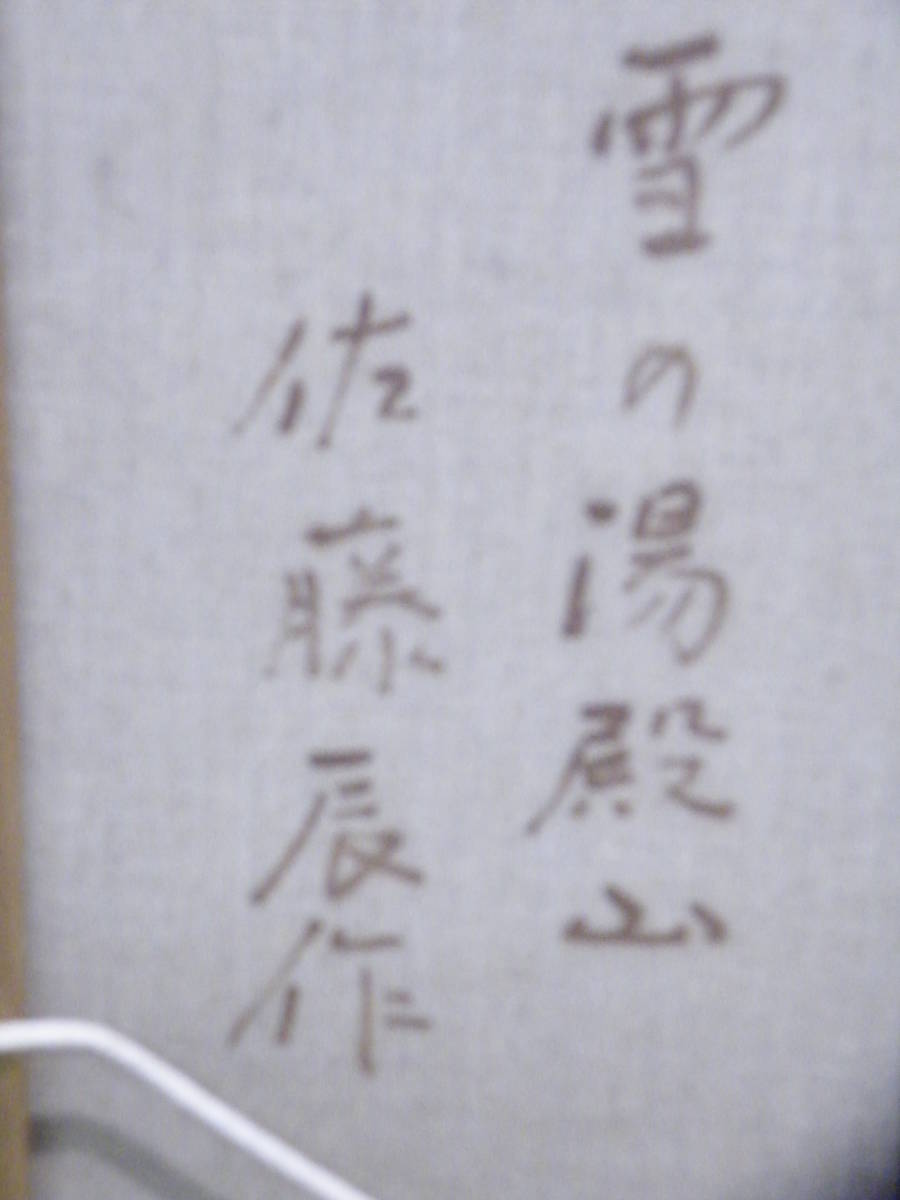 雪の湯殿山
佐藤辰作